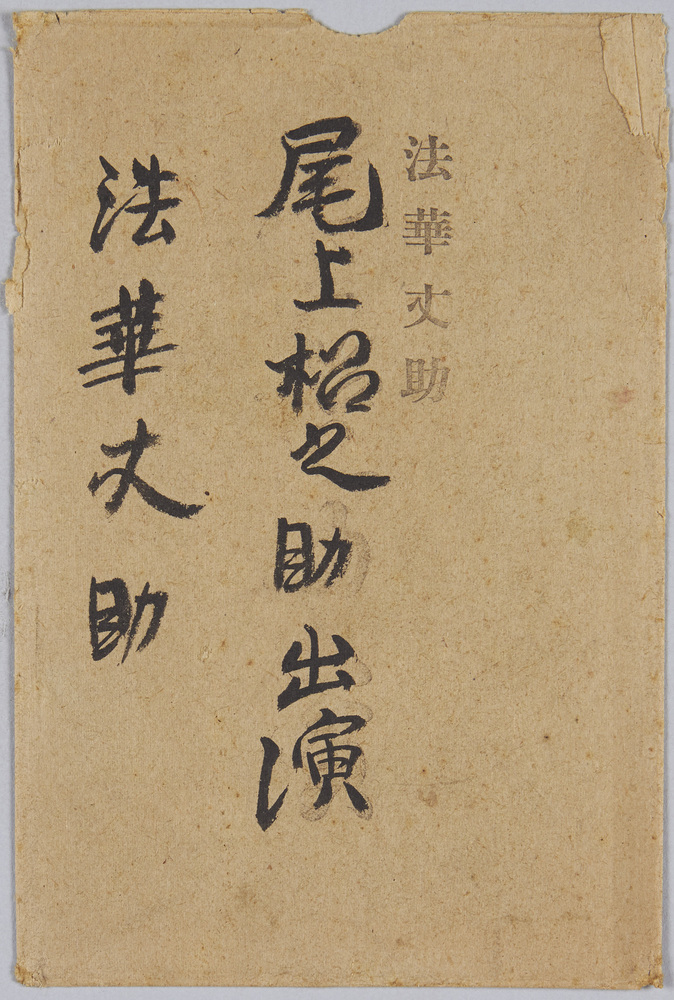 法華丈助
尾上柗之助出演
法華丈助